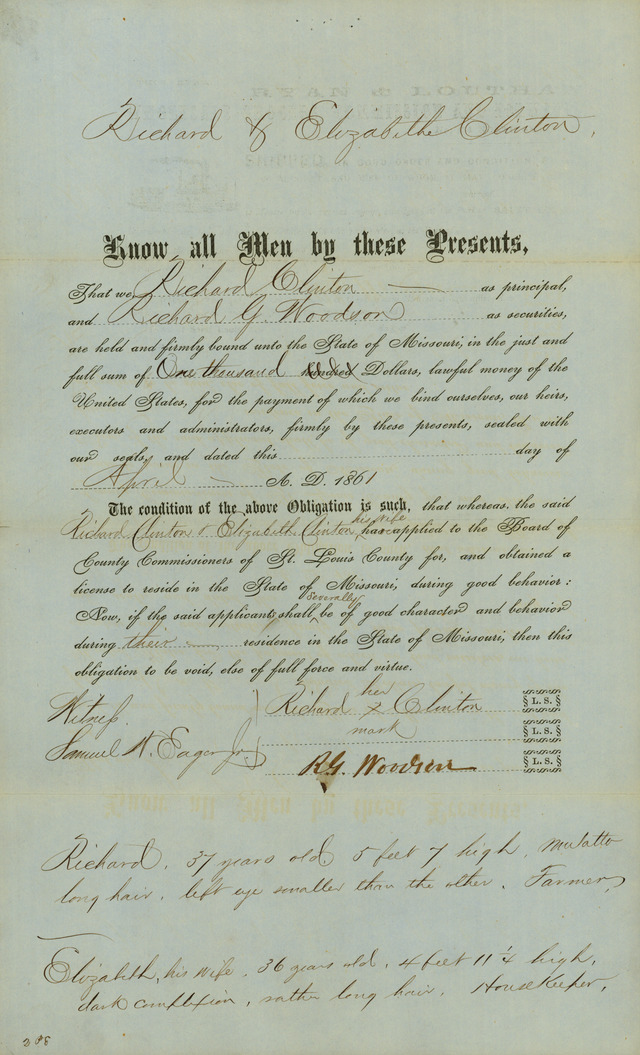 Richard & Elizabethe Clinton,
Know all Men by these Presents,
That we Richard Clinton as principal,
and Richard G. Woodson as securities,
are held and firmly bound unto the State of Missouri, in the just and
full sum of One thousand hundred Dollars, lawful money of the
United States, for the payment of which we bind ourselves, our heirs,
executors and administrators, firmly by these presents, sealed with
our seals, and dated this day of
April A. D. 1861
The condition of the above Obligation is such, that whereas, the said
Richard Clinton & Elizabeth Clinton his wife has applied to the Board of
County Commissioners of St. Louis County for, and obtained a
license to reside in the State of Missouri, during good behavior:
severally
Now, if the said applicants shall be of good character and behavior
during their residence in the State of Missouri, then this
obligation to be void, else of full force and virtue.
Witness.
Samuel N. Eager Jr.
her
Richard x Clinton L. S.
mark L. S.
R.G. Woodson L. S.
Richard, 37 years old 5 feet 7 high, mulatto
long hair, left eye smaller than the other. Farmer,
Elizabeth, his wife, 36 years old, 4 feet 11 1/4 high,
dark complexion, rather long hair. HouseKeeper,